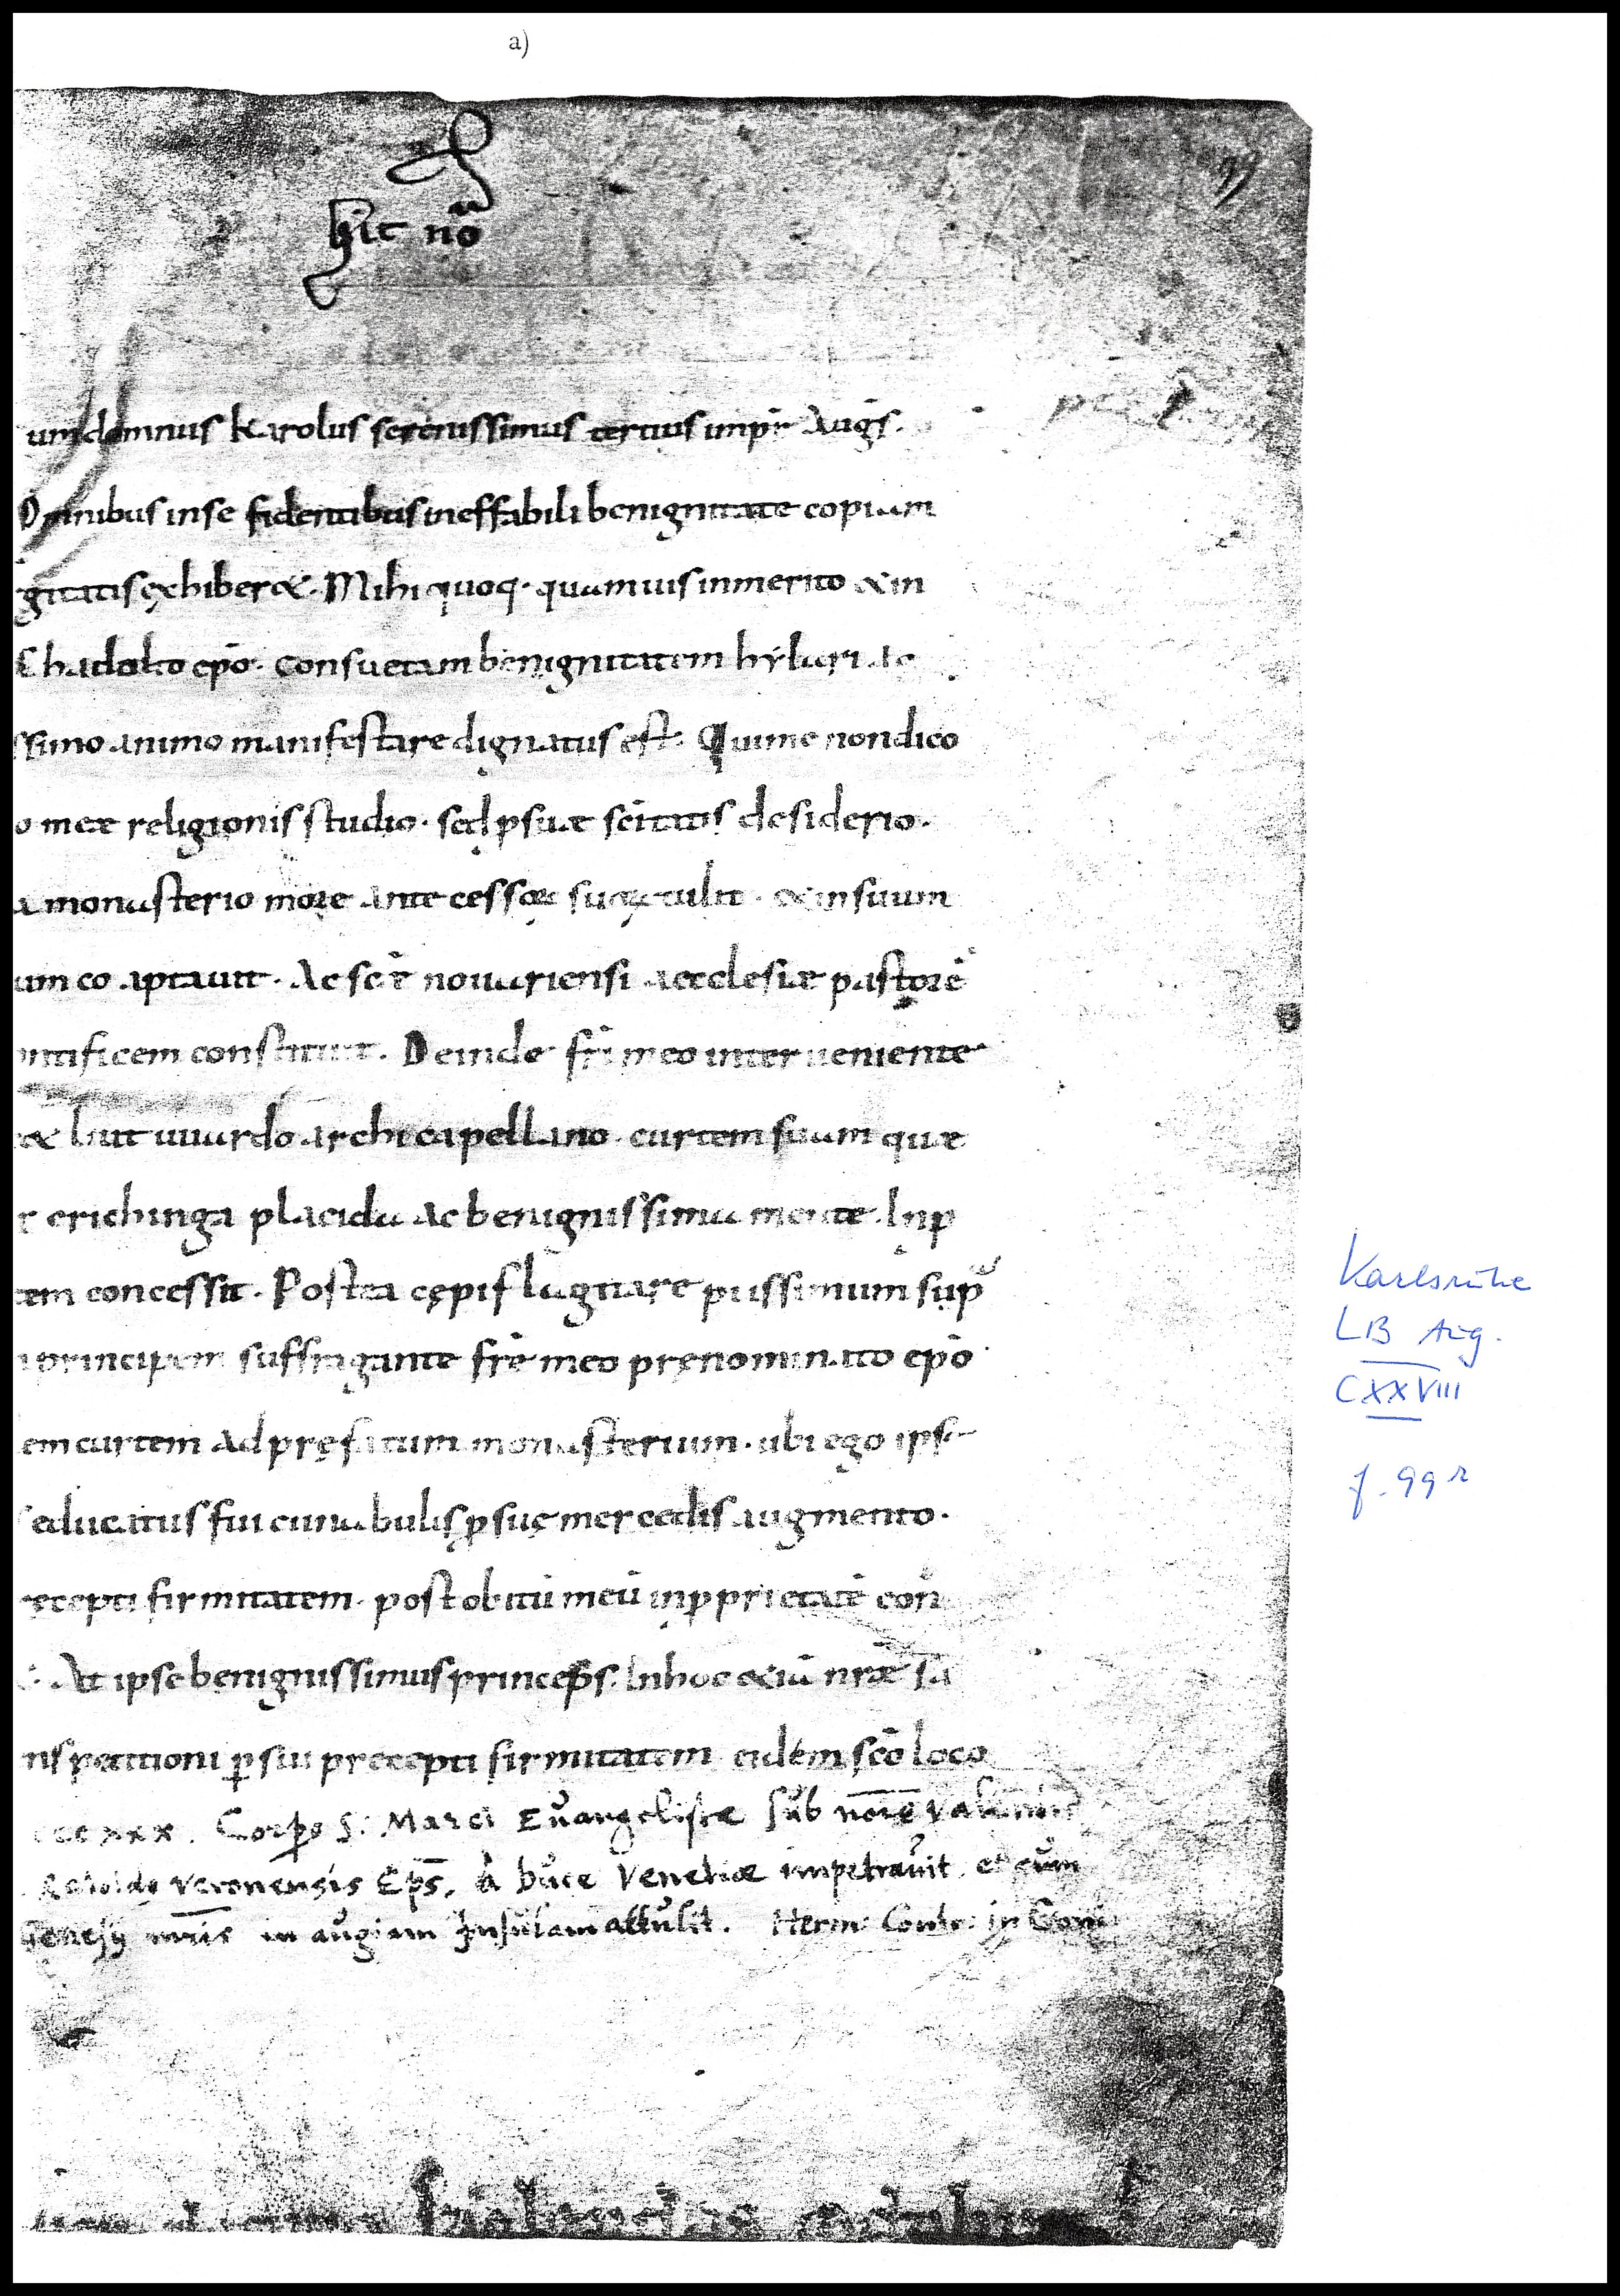 a)
hic no
um domnus Karolus serenissimus tertius impr̄ Augs̄.
Omnibus in se fidentibus ineffabili benignitate copiam
gitatis exhiberet. Mihi quoq· quamuis inmerito & in
Chadolto ep̄o. consuetam benignitatem hylari ac
ssimo animo manifestare dignatus est. Qui me non dico
o meae religionis studio. sed p suae sc̄itatis desiderio.
a monasterio more antecessorū suorū tulit. & in suum
um coaptauit. Ac sc̄e nouariensi aecclesiae pastorē
ntificem constituit. Deinde fr̄i meo interueniente
& liutuuardo archicapellano. curtem suam quae
r erichinga placida ac benignissima mente. In p
tem concessit. Postea cępi flagitare piissimum sup
principem suffragante fr̄e meo pręnominato ep̄o
em curtem ad pręfatum monasterium. ubi ego ipse
educatus fui cunabulis p suę mercedis augmento.
ręcepti firmitatem. post obitū meū in pprietatē con
At ipse benignissimus princeps. In hoc etiā nr̄ae
nis petitioni p sui pręcepti firmitatem eidem sc̄o loco
ccc xxx. Corp̄s S. Marci Euangelistae sub nōīe Valentis
Ratoldo Veronensis Ep̄s, à Duce Venetiae impetrauit et cum
Genesij in augiam Insulam attulit. Herm: Contr: in
Karlsruhe
LB Aug.
CXXVIII
f. 99 r